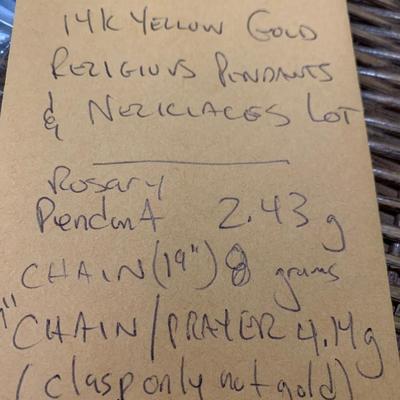 14K YELLOW GOLD
RELIGIOUS PENDANTS
& NECKLACES LOT
Rosary
Pendant 2.43 g
CHAIN (19") 8 grams
" CHAIN/PRAYER 4.14g
(clasp only not gold)